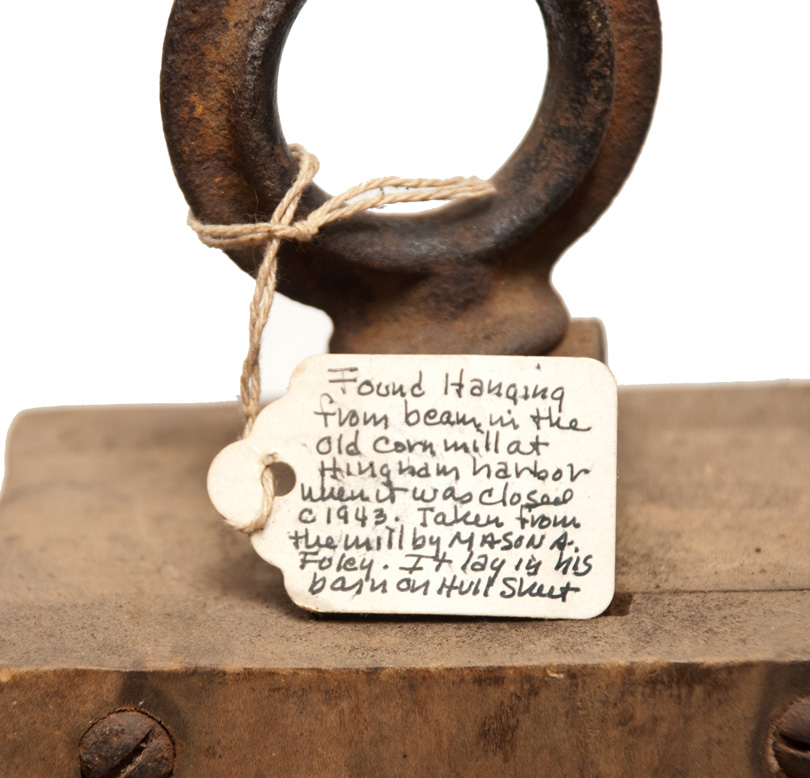 Found Hanging
from beam in the
old corn mill at
Hingham harbor
when it was closed
c 1943. Taken from
the mill by MASON A.
Foley. It lay in his
barn on Hull Street